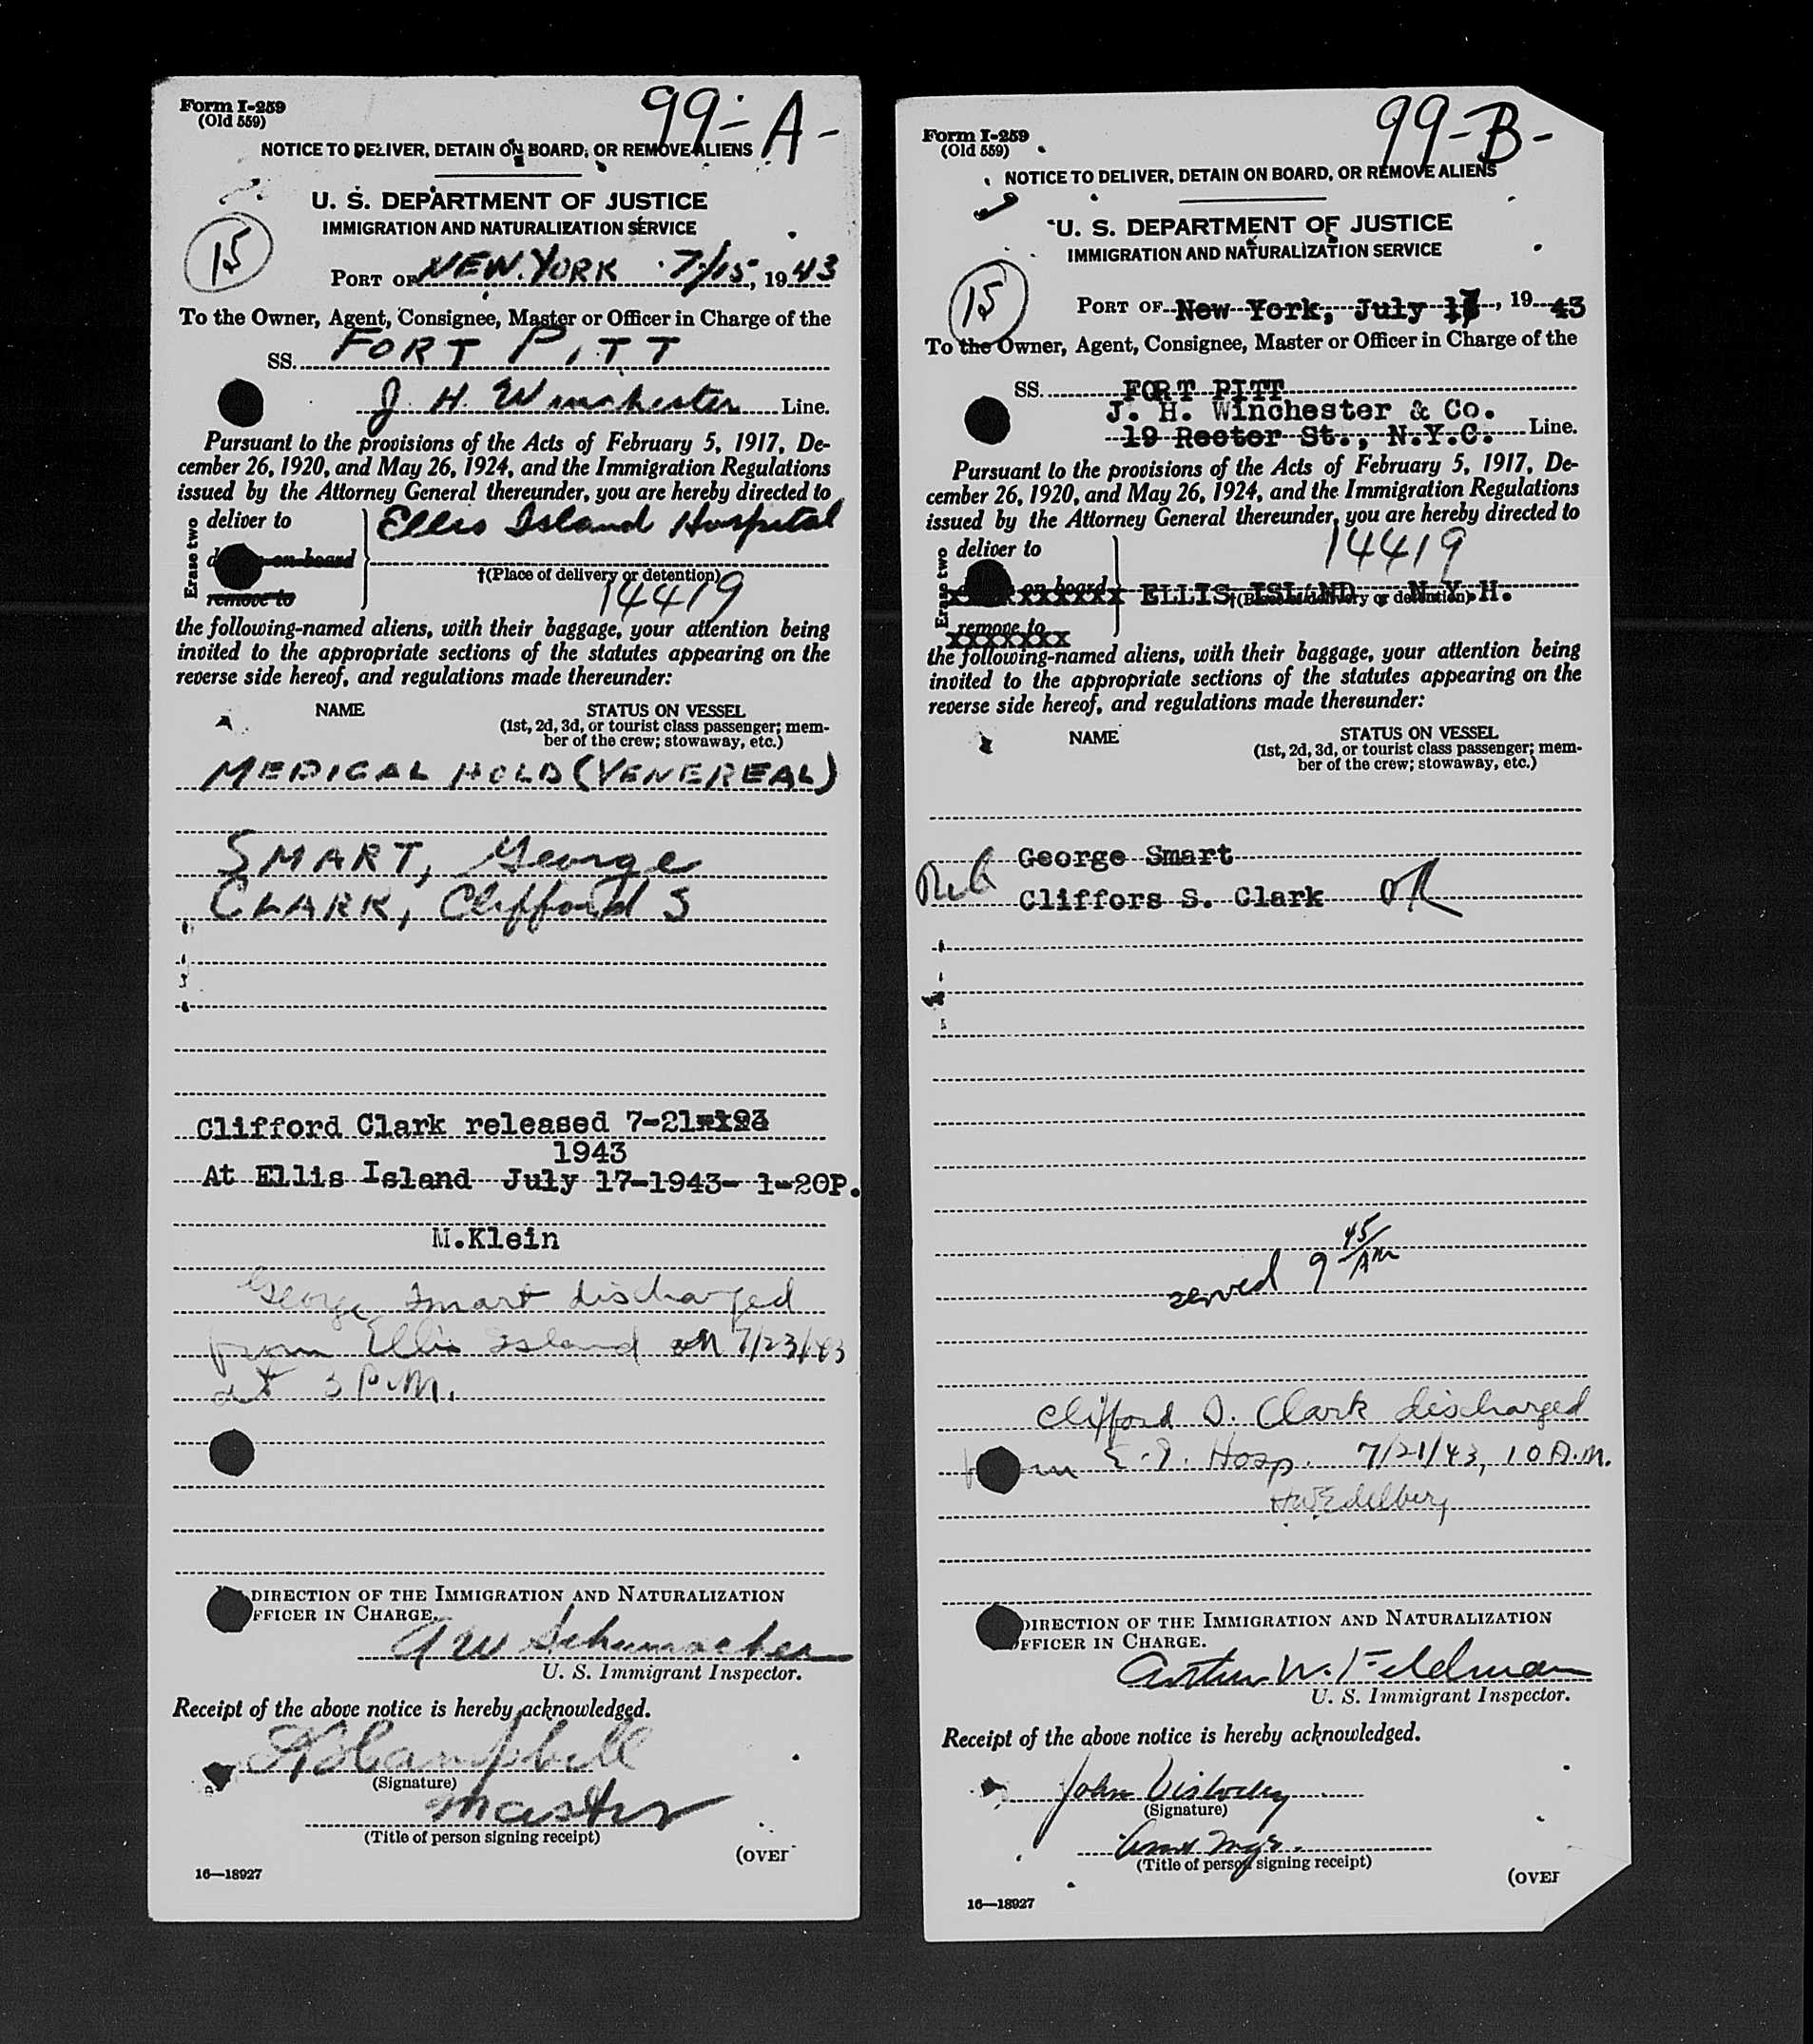 99-A-
Form I-259
(Old 559)
NOTICE TO DELIVER, DETAIN ON BOARD, OR REMOVE ALIENS
U. S. DEPARTMENT OF JUSTICE
IMMIGRATION AND NATURALIZATION SERVICE
15
PORT OF NEW YORK 7/15, 1943
To the Owner, Agent, Consignee, Master or Officer in Charge of the
SS. FORT PITT
J. H. Winchester Line.
Pursuant to the provisions of the Acts of February 5, 1917, De-
cember 26, 1920, and May 26, 1924, and the Immigration Regulations
issued by the Attorney General thereunder, you are hereby directed to
Erase two
deliver to
Ellis Island Hospital
on board
†(Place of delivery or detention)
remove to
14419
the following-named aliens, with their baggage, your attention being
invited to the appropriate sections of the statutes appearing on the
reverse side hereof, and regulations made thereunder:
NAME
STATUS ON VESSEL
(1st, 2d, 3d, or tourist class passenger; mem-
ber of the crew; stowaway, etc.)
MEDICAL HOLD (VENEREAL)
SMART, George
CLARK, Clifford S
Clifford Clark released 7-21
1943
At Ellis Island July 17-1943- 1-20P.
M.Klein
George Smart discharged
from Ellis Island on 7/23/43
at 3 P.M.
DIRECTION OF THE IMMIGRATION AND NATURALIZATION
FFICER IN CHARGE.
A W Schumacher
U. S. Immigrant Inspector.
Receipt of the above notice is hereby acknowledged.
Campbell
(Signature)
Master
(Title of person signing receipt)
(OVER
16—18927
99-B-
Form I-259
(Old 559)
NOTICE TO DELIVER, DETAIN ON BOARD, OR REMOVE ALIENS
U. S. DEPARTMENT OF JUSTICE
IMMIGRATION AND NATURALIZATION SERVICE
15
PORT OF New York, July, 1943
To the Owner, Agent, Consignee, Master or Officer in Charge of the
SS. FORT PITT
J. H. Winchester & Co.
19 Rector St., N.Y.C. Line.
Pursuant to the provisions of the Acts of February 5, 1917, De-
cember 26, 1920, and May 26, 1924, and the Immigration Regulations
issued by the Attorney General thereunder, you are hereby directed to
Erase two
deliver to
14419
on board
ELLIS ISLAND, N.Y.H.
†(Place of delivery or detention)
remove to
the following-named aliens, with their baggage, your attention being
invited to the appropriate sections of the statutes appearing on the
reverse side hereof, and regulations made thereunder:
NAME
STATUS ON VESSEL
(1st, 2d, 3d, or tourist class passenger; mem-
ber of the crew; stowaway, etc.)
George Smart
Cliffors S. Clark
served 9 45/AM
Clifford S. Clark discharged
E.I. Hosp. 7/21/43, 10 A.M.
HWEdelberg
DIRECTION OF THE IMMIGRATION AND NATURALIZATION
FFICER IN CHARGE.
Arthur W. Feldman
U. S. Immigrant Inspector.
Receipt of the above notice is hereby acknowledged.
John
(Signature)
Mgr.
(Title of person signing receipt)
(OVER
16—18927